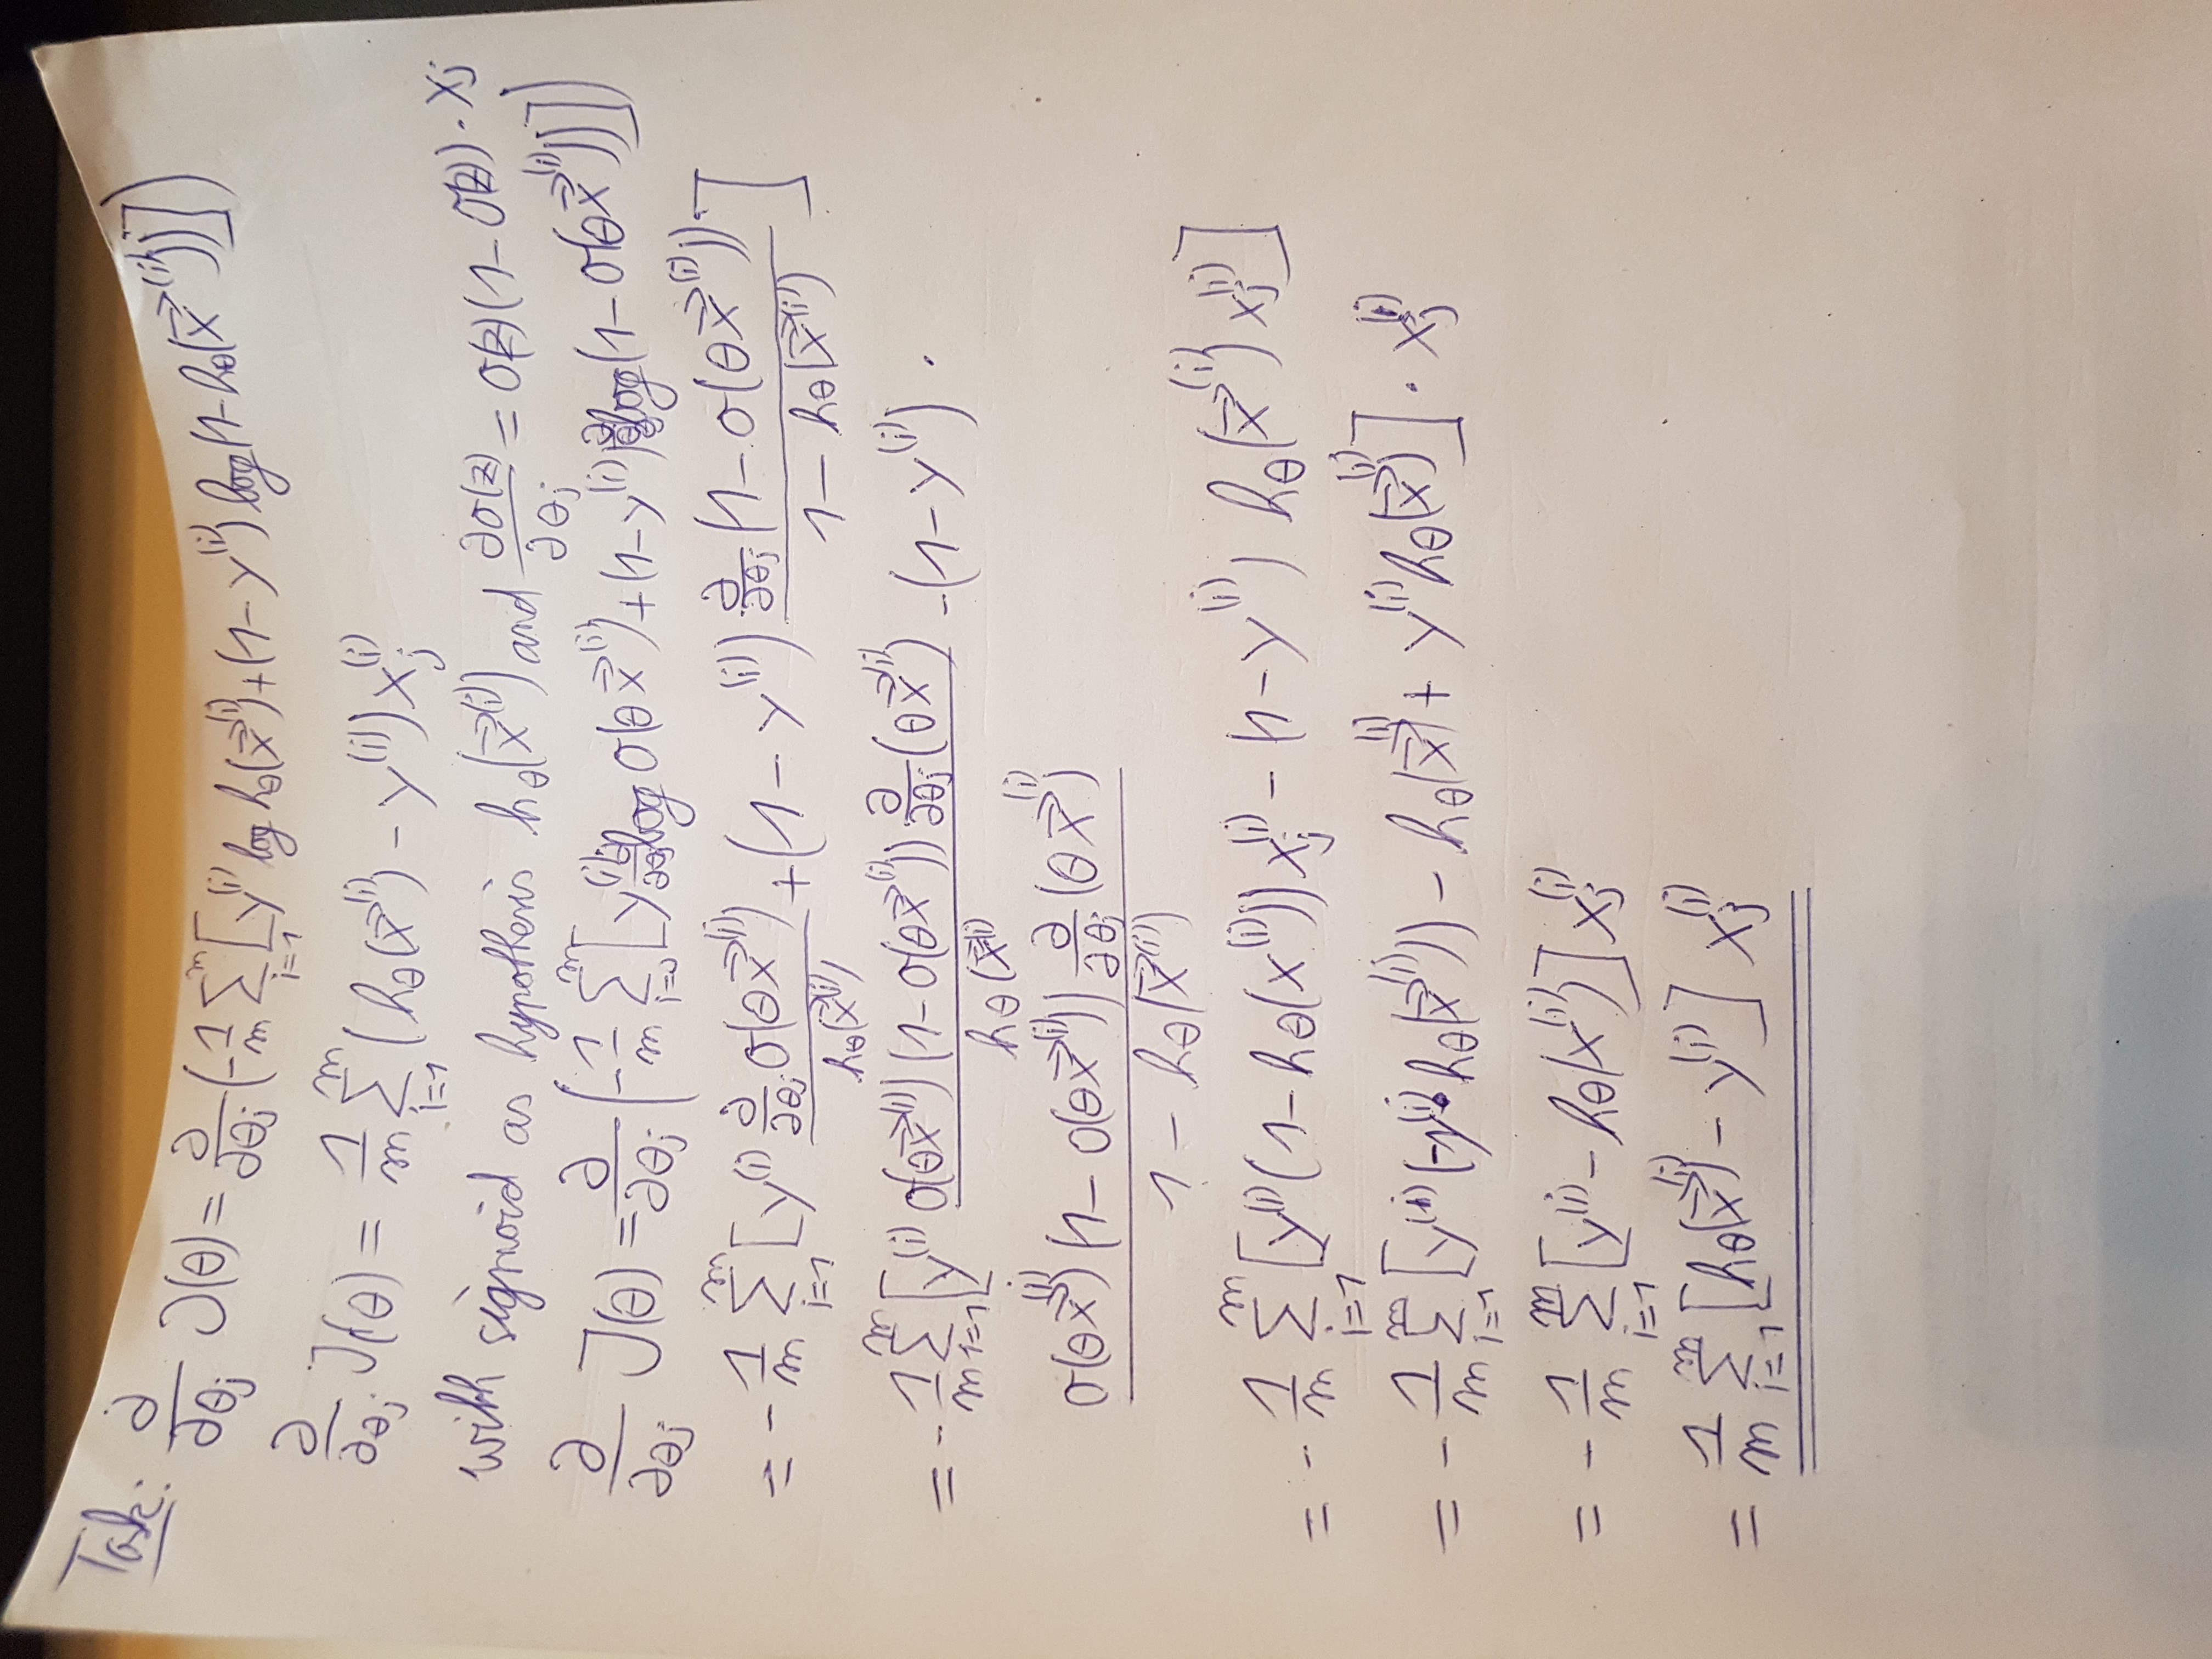 Task: ∂/∂θj J(θ) = ∂/∂θj (-1/m ∑_{i=1}^{m} [y^(i) log hθ(x⃗^(i)) + (1-y^(i)) log(1-hθ(x⃗^(i)))])
∂/∂θj J(θ) = 1/m ∑_{i=1}^{m} (hθ(x⃗^(i)) - y^(i)) xj^(i)
with sigmoid as hypothesis hθ(x⃗^(i)) and ∂σ(z)/∂θj = σ(z)(1-σ(z)) · xj
∂/∂θj J(θ) = ∂/∂θj (-1/m ∑_{i=1}^{m} [y^(i) ∂/∂θj log σ(θx⃗^(i)) + (1-y^(i)) ∂/∂θj log(1-σ(θx⃗^(i)))])
= -1/m ∑_{i=1}^{m} [y^(i) (∂/∂θj σ(θx⃗^(i)))/(hθ(x⃗^(i))) + (1-y^(i)) (∂/∂θj (1-σ(θx⃗^(i))))/(1-hθ(x⃗^(i)))]
= -1/m ∑_{i=1}^{m} [y^(i) (σ(θx⃗^(i)) (1-σ(θx⃗^(i))) ∂/∂θj (θx⃗^(i)))/(hθ(x⃗^(i))) - (1-y^(i)) ·
(σ(θx⃗^(i)) (1-σ(θx⃗^(i))) ∂/∂θj (θx⃗^(i)))/(1-hθ(x⃗^(i)))
= -1/m ∑_{i=1}^{m} [y^(i) (1-hθ(x^(i))) xj^(i) - (1-y^(i)) hθ(x⃗^(i)) xj^(i)]
= -1/m ∑_{i=1}^{m} [y^(i) (-y^(i) · hθ(x⃗^(i))) - hθ(x⃗^(i)) + y^(i) hθ(x⃗^(i))] · xj^(i)
= -1/m ∑_{i=1}^{m} [y^(i) - hθ(x^(i))] xj^(i)
= 1/m ∑_{i=1}^{m} [hθ(x⃗^(i)) - y^(i)] xj^(i)